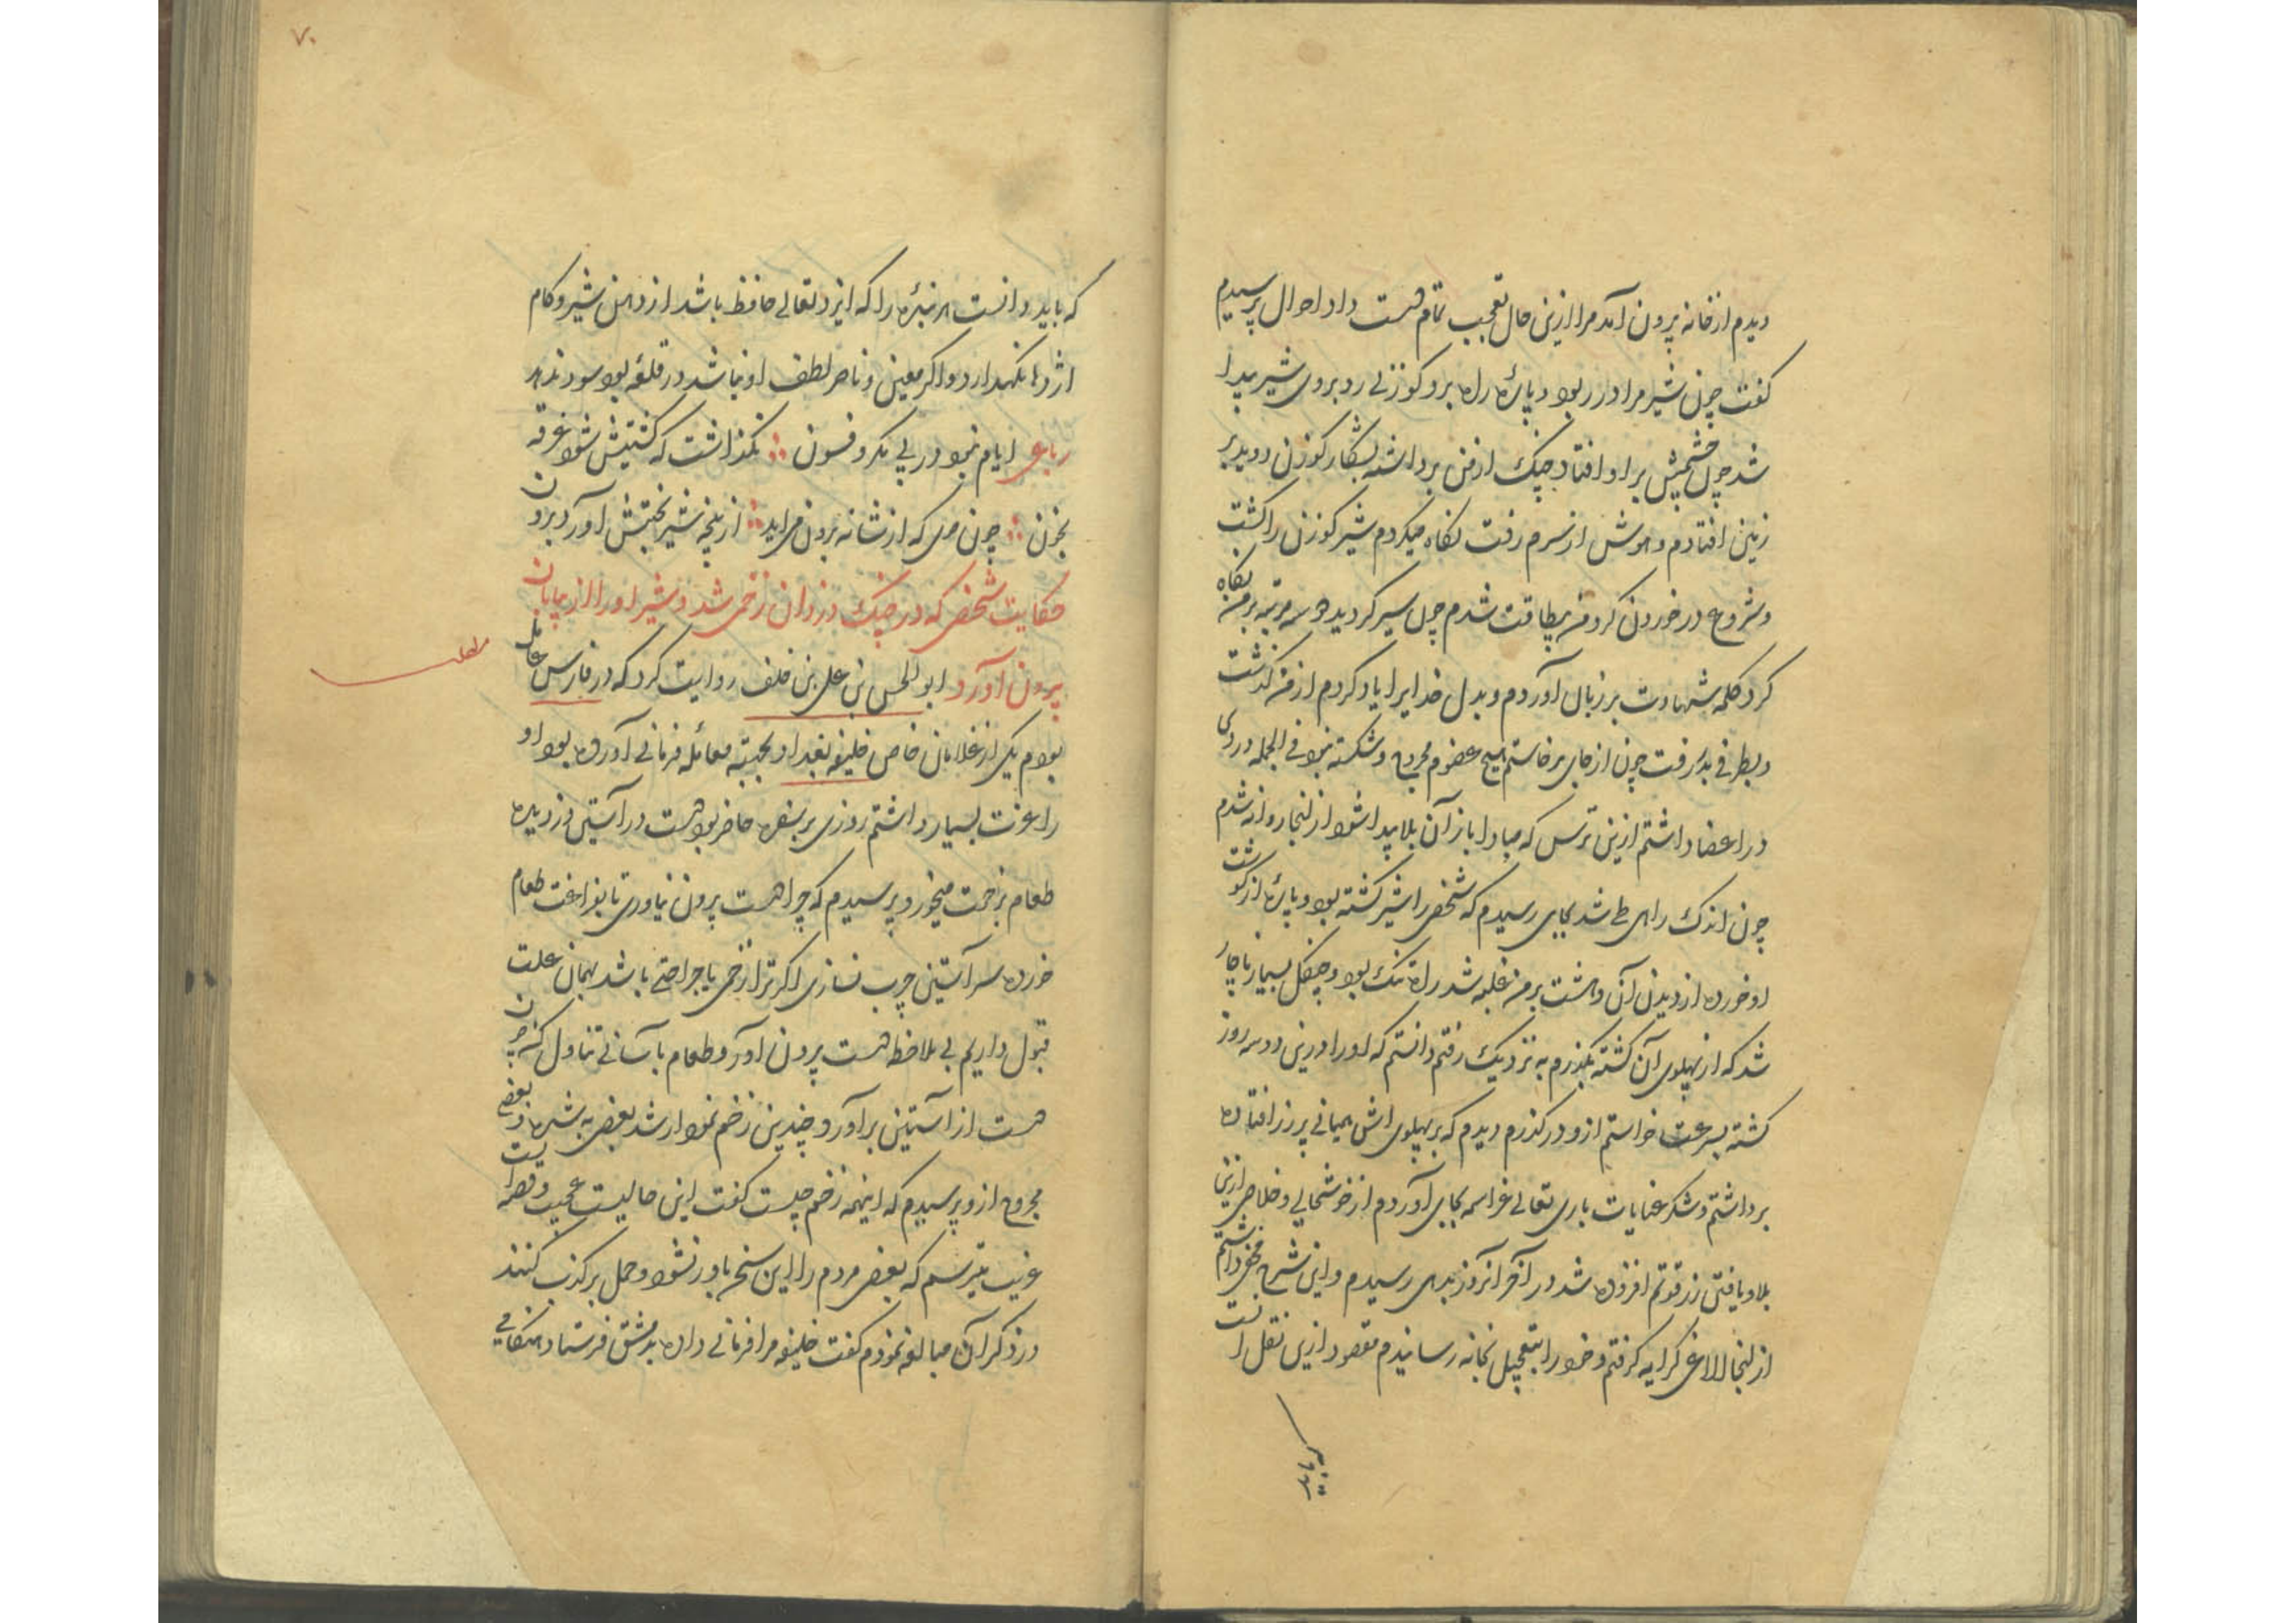 دیدم از خانه بیرون آمد مرا ازین حال تعجب تمام دست داد احوال پرسیدم
گفت چون شیر مرا در ربود و پاره راه برد گوزنی رو بروی شیر پیدا
شد چون چشمش بر او افتاد چنگ از من برداشته بشکار گوزن دوید بر
زمین افتادم و هوش از سرم رفت نکاه میکردم شیر گوزن را کشت
و شروع در خوردن کرد من بیطاقت شدم چون سیر کردید دو سه مرتبه بر من نکاه
کرد کلمه شهادت بر زبان آوردم و بدل خدایرا یاد کردم از من گذشت
و بطرفی بدر رفت چون از جای برخاستم هیچ عضوم مجروح و شکسته نبود فی الجمله دردی
در اعضا داشتم ازین ترس که مبادا باز آن بلا پیدا شود از انجا روانه شدم
چون اندک راهی طی شد بجای رسیدم که شخصی را شیر کشته بود و پاره از گوشت
او خورده از دیدن آن دهشت بر من غلبه شد راه تنک بود و جنکل بسیار ناچار
شد که از پهلوی آن کشته بگذرم به نزدیک رفتم دانستم که او را درین دو سه روز
کشته بسرعت خواستم ازو در گذرم دیدم که بر پهلوی اش همیانی پر زر افتاده
برداشتم و شکر عنایات باری تعالی عز اسمه بجای آوردم از خوشحالی و خلاصی ازین
بلا و یافتن زر قوتم افزوده شد در آخر آنروز بدهی رسیدم و این شرح مخفی داشتم
از انجا الاغی کرایه کرفتم و خود را بتعجیل بخانه رسانیدم مقصود ازین نقل انست
۷۰
که باید دانست هر بنده را که ایزد تعالی حافظ باشد از دهن شیر و کام
اژدها نکهدارد و اکر معین و ناصر لطف او نباشد در قلعه بود سود ندهد
رباعی ایام نبود در پی مکر و فسون ∴ نکذاشت که کشتیش شود غرقه
بخون ∴ چون موی که از شانه برون می اید ∴ از پنجه شیر بختش آورد برون
حکایت شخصی که در جنک دزدان زخمی شد و شیر او را از بیابان
بیرون آورد ابوالحسن بن علی بن خلف روایت کرد که در فارس عامل
مطلب
بودم یکی از غلامان خاص خلیفه بغداد بجهته معامله فرمانی آورده بود او
را عزت بسیار داشتم روزی بر سفره حاضر بود دست در آستین دزدیده
طعام بزحمت میخورد پرسیدم که چرا دست بیرون نیاوری تا بفراغت طعام
خورده سر آستین چرب نسازی اکر ترا زخمی یا جراحتی باشد بهمان علت
قبول داریم بی ملاحظه دست بیرون آور و طعام بآسانی تناول کن چون
دست از آستین برآورد چندین زخم نمودار شد بعضی به شده و بعضی
مجروح ازو پرسیدم که اینهمه زخم چیست گفت این حالیست عجیب و قصه ایست
غریب میترسم که بعضی مردم را این سخن باور نشود و حمل بر کذب کنند
در ذکر آن مبالغه نمودم گفت خلیفه مرا فرمانی داده بدمشق فرستاد هنکامی